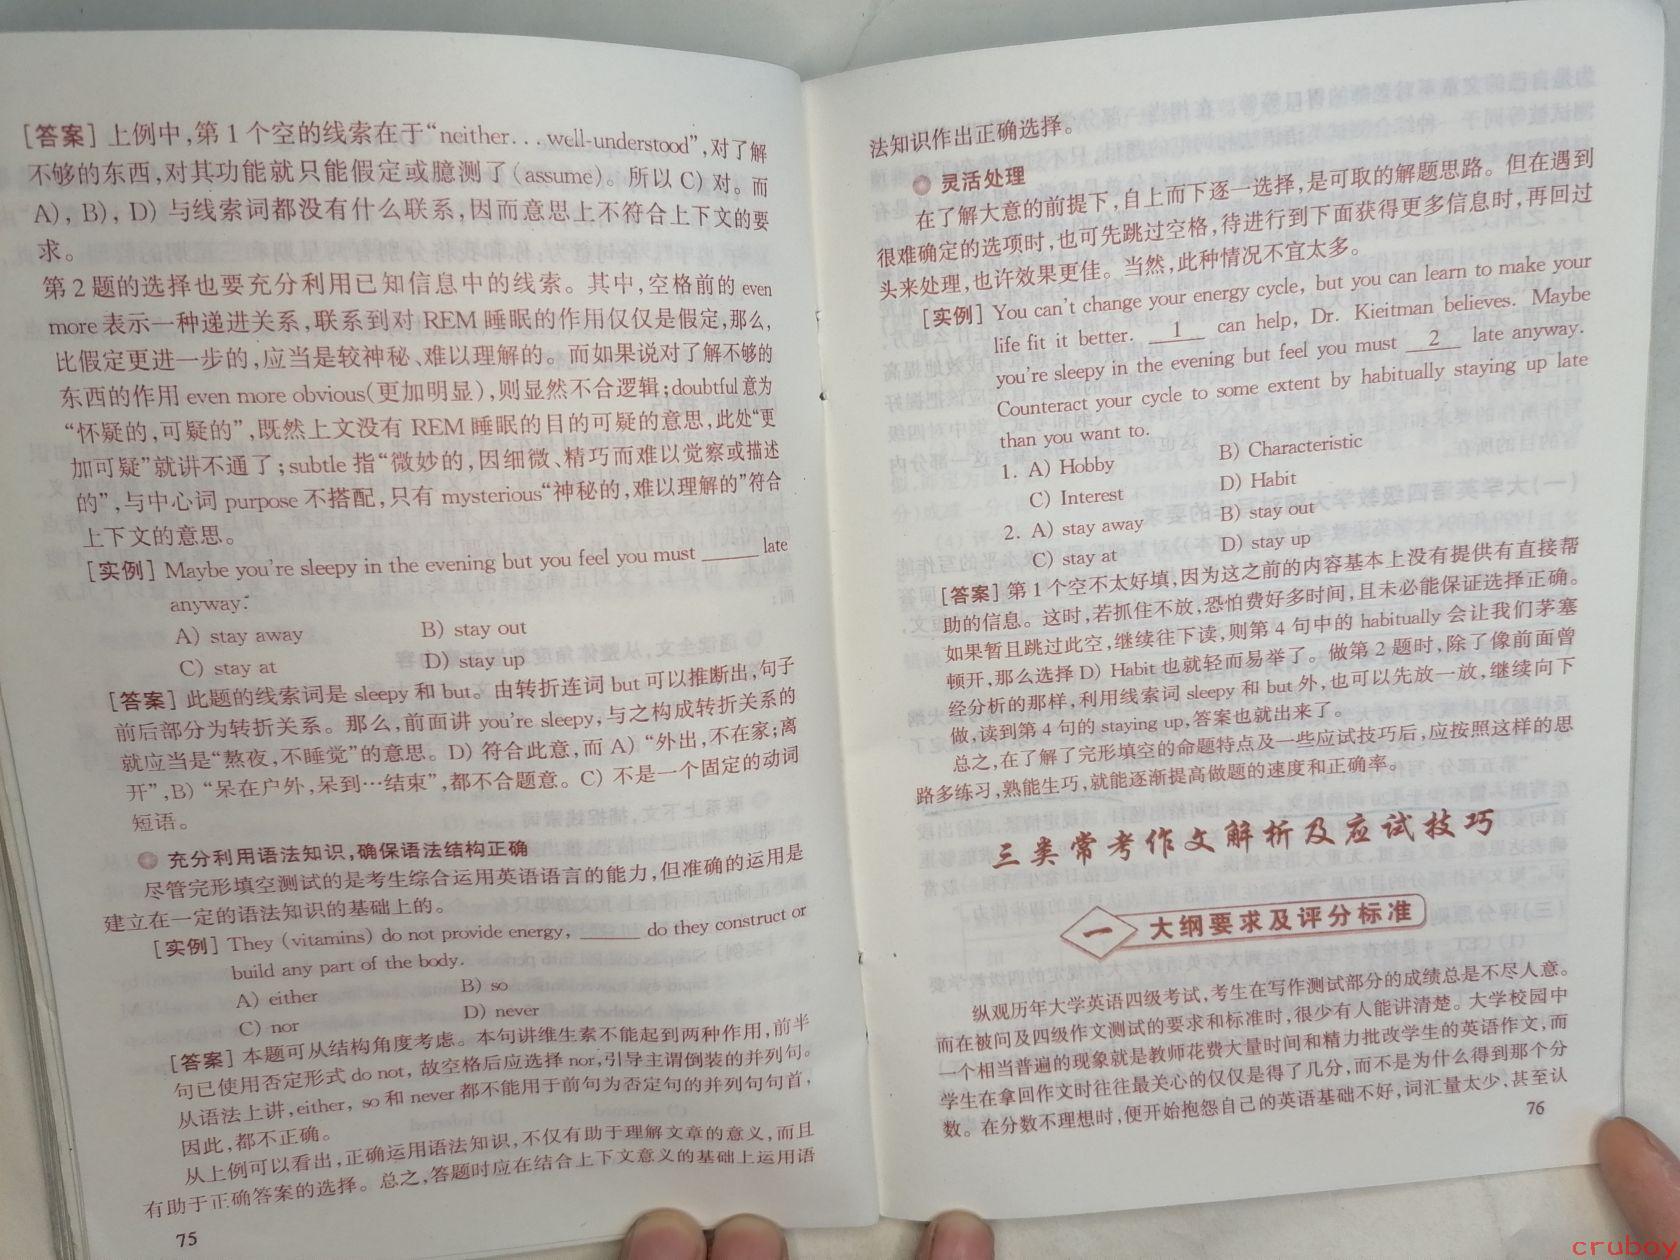 [答案] 上例中,第 1 个空的线索在于“neither. . . well-understood”,对了解
不够的东西,对其功能就只能假定或臆测了 (assume)。所以 C) 对。而
A), B), D) 与线索词都没有什么联系,因而意思上不符合上下文的要
求。
第 2 题的选择也要充分利用已知信息中的线索。其中,空格前的 even
more 表示一种递进关系,联系到对 REM 睡眠的作用仅仅是假定,那么,
比假定更进一步的,应当是较神秘、难以理解的。而如果说对了解不够的
东西的作用 even more obvious(更加明显),则显然不合逻辑;doubtful 意为
“怀疑的,可疑的”,既然上文没有 REM 睡眠的目的可疑的意思,此处“更
加可疑”就讲不通了;subtle 指“微妙的,因细微、精巧而难以觉察或描述
的”,与中心词 purpose 不搭配,只有 mysterious“神秘的,难以理解的”符合
上下文的意思。
[实例] Maybe you're sleepy in the evening but you feel you must ______ late
anyway.
A) stay away B) stay out
C) stay at D) stay up
[答案] 此题的线索词是 sleepy 和 but。由转折连词 but 可以推断出,句子
前后部分为转折关系。那么,前面讲 you're sleepy,与之构成转折关系的
就应当是“熬夜,不睡觉”的意思。D) 符合此意,而 A) “外出,不在家;离
开”,B) “呆在户外,呆到…结束”,都不合题意。C) 不是一个固定的动词
短语。
充分利用语法知识,确保语法结构正确
尽管完形填空测试的是考生综合运用英语语言的能力,但准确的运用是
建立在一定的语法知识的基础上的。
[实例] They (vitamins) do not provide energy, ______ do they construct or
build any part of the body.
A) either B) so
C) nor D) never
[答案] 本题可从结构角度考虑。本句讲维生素不能起到两种作用,前半
句已使用否定形式 do not, 故空格后应选择 nor,引导主谓倒装的并列句。
从语法上讲,either, so 和 never 都不能用于前句为否定句的并列句句首,
因此,都不正确。
从上例可以看出,正确运用语法知识,不仅有助于理解文章的意义,而且
有助于正确答案的选择。总之,答题时应在结合上下文意义的基础上运用语
75
法知识作出正确选择。
灵活处理
在了解大意的前提下,自上而下逐一选择,是可取的解题思路。但在遇到
很难确定的选项时,也可先跳过空格,待进行到下面获得更多信息时,再回过
头来处理,也许效果更佳。当然,此种情况不宜太多。
[实例] You can't change your energy cycle, but you can learn to make your
life fit it better. __1__ can help, Dr. Kieitman believes. Maybe
you're sleepy in the evening but feel you must __2__ late anyway.
Counteract your cycle to some extent by habitually staying up late
than you want to.
1. A) Hobby B) Characteristic
C) Interest D) Habit
2. A) stay away B) stay out
C) stay at D) stay up
[答案] 第 1 个空不太好填,因为这之前的内容基本上没有提供有直接帮
助的信息。这时,若抓住不放,恐怕费好多时间,且未必能保证选择正确。
如果暂且跳过此空,继续往下读,则第 4 句中的 habitually 会让我们茅塞
顿开,那么选择 D) Habit 也就轻而易举了。做第 2 题时,除了像前面曾
经分析的那样,利用线索词 sleepy 和 but 外,也可以先放一放,继续向下
做,读到第 4 句的 staying up,答案也就出来了。
总之,在了解了完形填空的命题特点及一些应试技巧后,应按照这样的思
路多练习,熟能生巧,就能逐渐提高做题的速度和正确率。
三类常考作文解析及应试技巧
一 大纲要求及评分标准
纵观历年大学英语四级考试,考生在写作测试部分的成绩总是不尽人意。
而在被问及四级作文测试的要求和标准时,很少有人能讲清楚。大学校园中
一个相当普遍的现象就是教师花费大量时间和精力批改学生的英语作文,而
学生在拿回作文时往往最关心的仅仅是得了几分,而不是为什么得到那个分
数。在分数不理想时,便开始抱怨自己的英语基础不好,词汇量太少,甚至认
76
cruboy